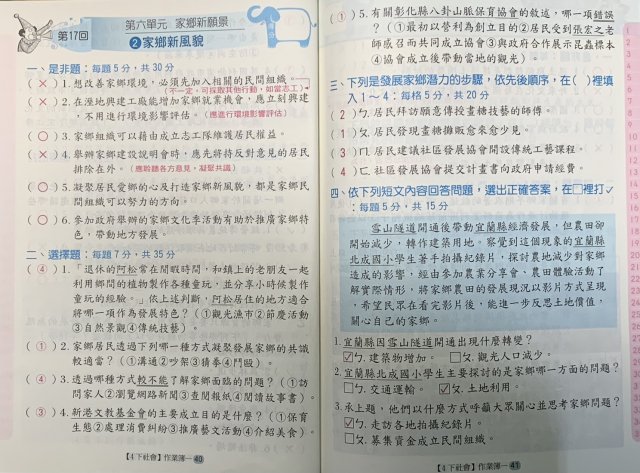 第17回
第六單元 家鄉新願景
❷家鄉新風貌
一、是非題：每題5分，共30分
（✕）1. 想改善家鄉環境，必須先加入相關的民間組織。
（不一定，可採取其他行動，如當志工）
（✕）2. 在溼地興建工廠能增加家鄉就業機會，應立刻興建，
不用進行環境影響評估。（應進行環境影響評估）
（○）3. 家鄉組織可以藉由成立志工隊維護居民權益。
（✕）4. 舉辦家鄉建設說明會時，應先將持反對意見的居民
排除在外。（應聆聽各方意見，凝聚共識）
（○）5. 凝聚居民愛鄉的心及打造家鄉新風貌，都是家鄉民
間組織可以努力的方向。
（○）6. 參加政府舉辦的家鄉文化季活動有助於推廣家鄉特
色，帶動地方發展。
二、選擇題：每題7分，共35分
（④）1. 「退休的阿松常在閒暇時間，和鎮上的老朋友一起
利用鄉間的植物製作各種童玩，並分享小時候製作
童玩的經驗。」依上述判斷，阿松居住的地方適合
將哪一項作為發展特色？（①觀光漁市②節慶活動
③自然景觀④傳統技藝）。
（①）2. 家鄉居民透過下列哪一種方式凝聚發展家鄉的共識
較適當？（①溝通②吵架③猜拳④鬥毆）。
（④）3. 透過哪種方式較不能了解家鄉面臨的問題？（①訪
問家人②瀏覽網路新聞③查閱報紙④閱讀故事書）。
（③）4. 新港文教基金會的主要成立目的是什麼？（①保育
生態②處理消費糾紛③推廣藝文活動④介紹美食）。
【4下社會】作業簿—40
（①）5. 有關彰化縣八卦山脈保育協會的敘述，哪一項錯誤
？（①最初以營利為創立目的②居民受到張宏之老
師感召而共同成立協會③與政府合作展示昆蟲標本
④協會成立後帶動當地的觀光）。
三、下列是發展家鄉潛力的步驟，依先後順序，在（ ）裡填
入1～4：每格5分，共20分
（2）ㄅ. 居民拜訪願意傳授畫糖技藝的師傅。
（1）ㄆ. 居民發現畫糖攤販愈來愈少見。
（3）ㄇ. 居民建議社區發展協會開設傳統工藝課程。
（4）ㄈ. 社區發展協會提交計畫書向政府申請經費。
四、依下列短文內容回答問題，選出正確答案，在□裡打✓
：每題5分，共15分
雪山隧道開通後帶動宜蘭縣經濟發展，但農田卻
開始減少，轉作建築用地。察覺到這個現象的宜蘭縣
北成國小學生著手拍攝紀錄片，探討農地減少對家鄉
造成的影響，經由參加農業分享會、農田體驗活動了
解實際情形，將家鄉農田的發展現況以影片方式呈現
，希望民眾在看完影片後，能進一步反思土地價值，
關心自己的家鄉。
1. 宜蘭縣因雪山隧道開通出現什麼轉變？
☑ㄅ. 建築物增加。 □ㄆ. 觀光人口減少。
2. 宜蘭縣北成國小學生主要探討的是家鄉哪一方面的問題？
□ㄅ. 交通運輸。 ☑ㄆ. 土地利用。
3. 承上題，他們以什麼方式呼籲大眾關心並思考家鄉問題？
☑ㄅ. 走訪各地拍攝紀錄片。
□ㄆ. 募集資金成立民間組織。
【4下社會】作業簿—41